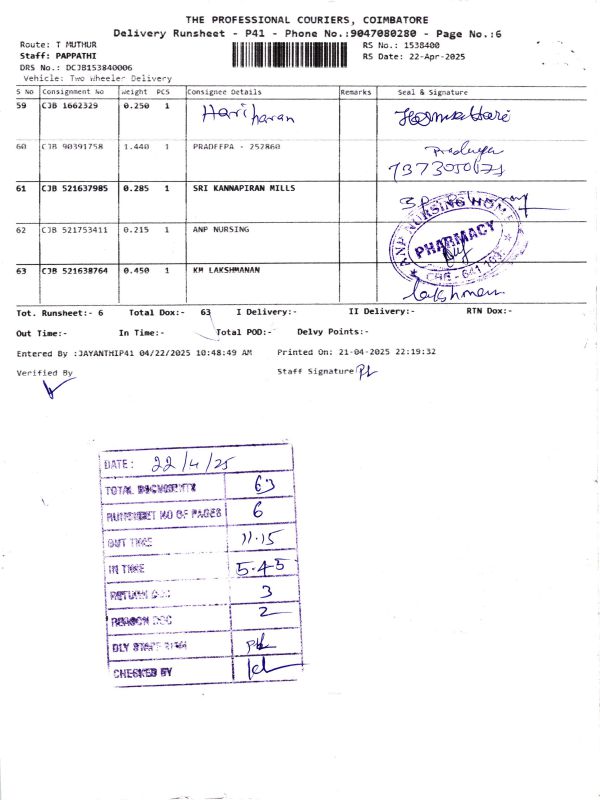 THE PROFESSIONAL COURIERS, COIMBATORE
Delivery Runsheet - P41 - Phone No.:9047080280 - Page No.:6
Route: T MUTHUR
RS No.: 1538400
Staff: PAPPATHI
RS Date: 22-Apr-2025
DRS No.: DCJB153840006
Vehicle: Two Wheeler Delivery
S No Consignment No Weight PCS Consignee Details Remarks Seal & Signature
59 CJB 1662329 0.250 1 Hariharan
60 CJB 90391758 1.440 1 PRADEEPA - 252860
61 CJB 521637985 0.285 1 SRI KANNAPIRAN MILLS
62 CJB 521753411 0.215 1 ANP NURSING
ANP NURSING HOME
PHARMACY
63 CJB 521638764 0.450 1 KM LAKSHMANAN
Lakshman
Tot. Runsheet:- 6 Total Dox:- 63 I Delivery:- II Delivery:- RTN Dox:-
Out Time:- In Time:- Total POD:- Delvy Points:-
Entered By :JAYANTHIP41 04/22/2025 10:48:49 AM Printed On: 21-04-2025 22:19:32
Verified By Staff Signature
DATE: 22/4/25
TOTAL DOCUMENTS 63
RUNSHEET NO OF PAGES 6
OUT TIME 11.15
IN TIME 5.45
RETURN DOC 3
REASON DOC 2
DLY STAFF SIGN
CHECKED BY